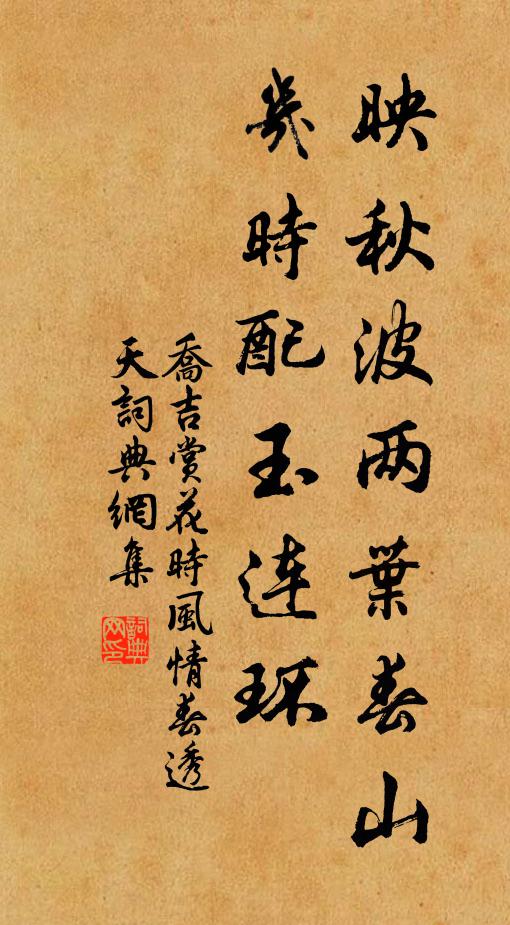 映秋波两葉春山
幾時配玉連环
喬吉賞花時風情春透
天詞典網集
詞典網印